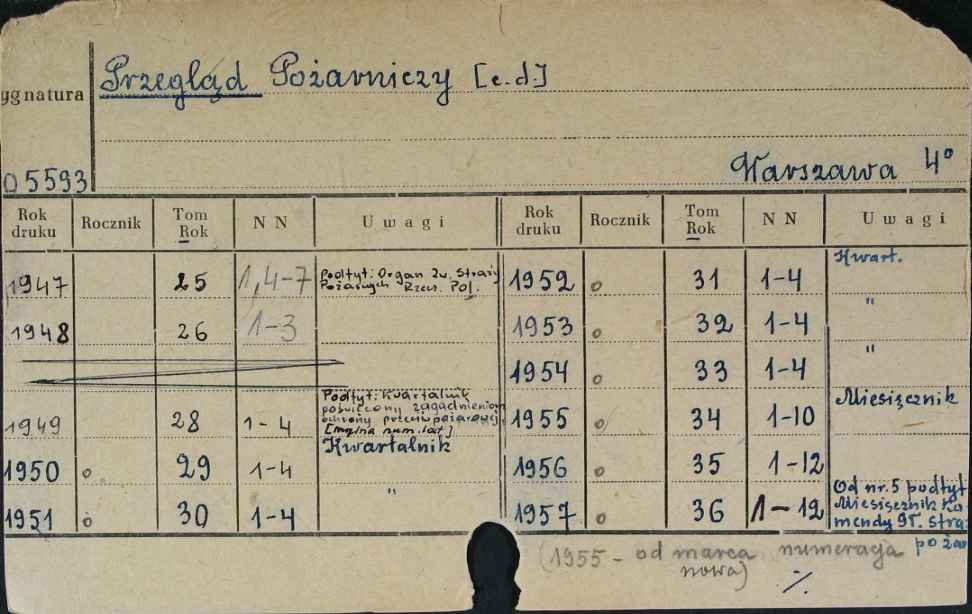 Przegląd Pożarniczy [c.d.]
ygnatura
05593
Warszawa 4°
Rok druku Rocznik Tom Rok NN Uwagi Rok druku Rocznik Tom Rok NN Uwagi
1947 25 1,4-7 Podtyt: Organ Zw. Straży Pożarnych Rzecz. Pol. 1952 o 31 1-4 Kwart.
1948 26 1-3 1953 o 32 1-4 "
1954 o 33 1-4 "
1949 28 1-4 Podtyt: Kwartalnik poświęcony zagadnieniom ochrony przeciwpożarowej. [mylna num. lat] 1955 o 34 1-10 Miesięcznik
1950 o 29 1-4 Kwartalnik 1956 35 1-12
1951 o 30 1-4 " 1957 o 36 1-12 Od nr. 5 podtyt Miesięcznik Ko mendy Gł. stra poża
(1955 - od marca numeracja
nowa)
·/.